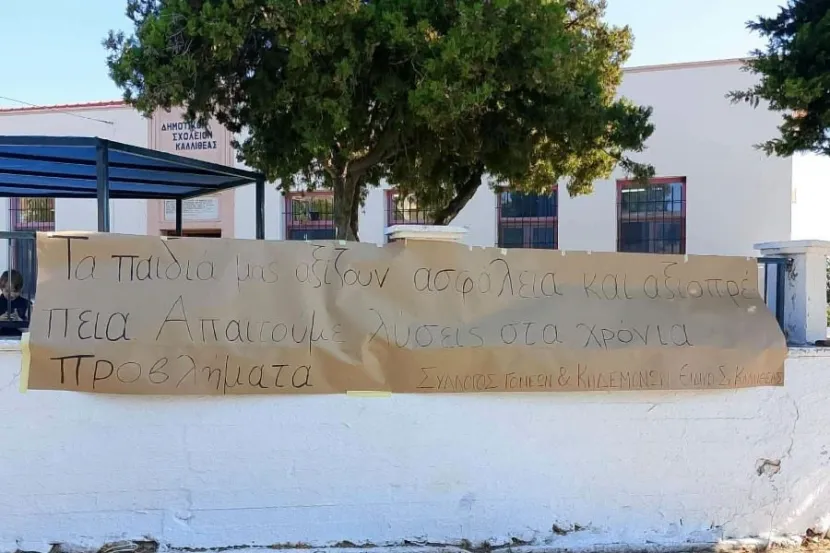 ΔΗΜΟΤΙΚΟΝ
ΣΧΟΛΕΙΟΝ
ΚΑΛΛΙΘΕΑΣ
Τα παιδιά μας αξίζουν ασφάλεια και αξιοπρέ
πεια Απαιτούμε λύσεις στα χρόνια
προβλήματα
ΣΥΛΛΟΓΟΣ ΓΟΝΕΩΝ & ΚΗΔΕΜΟΝΩΝ ΕΙΔΙΚΟ Σ. ΚΑΛΛΙΘΕΑΣ